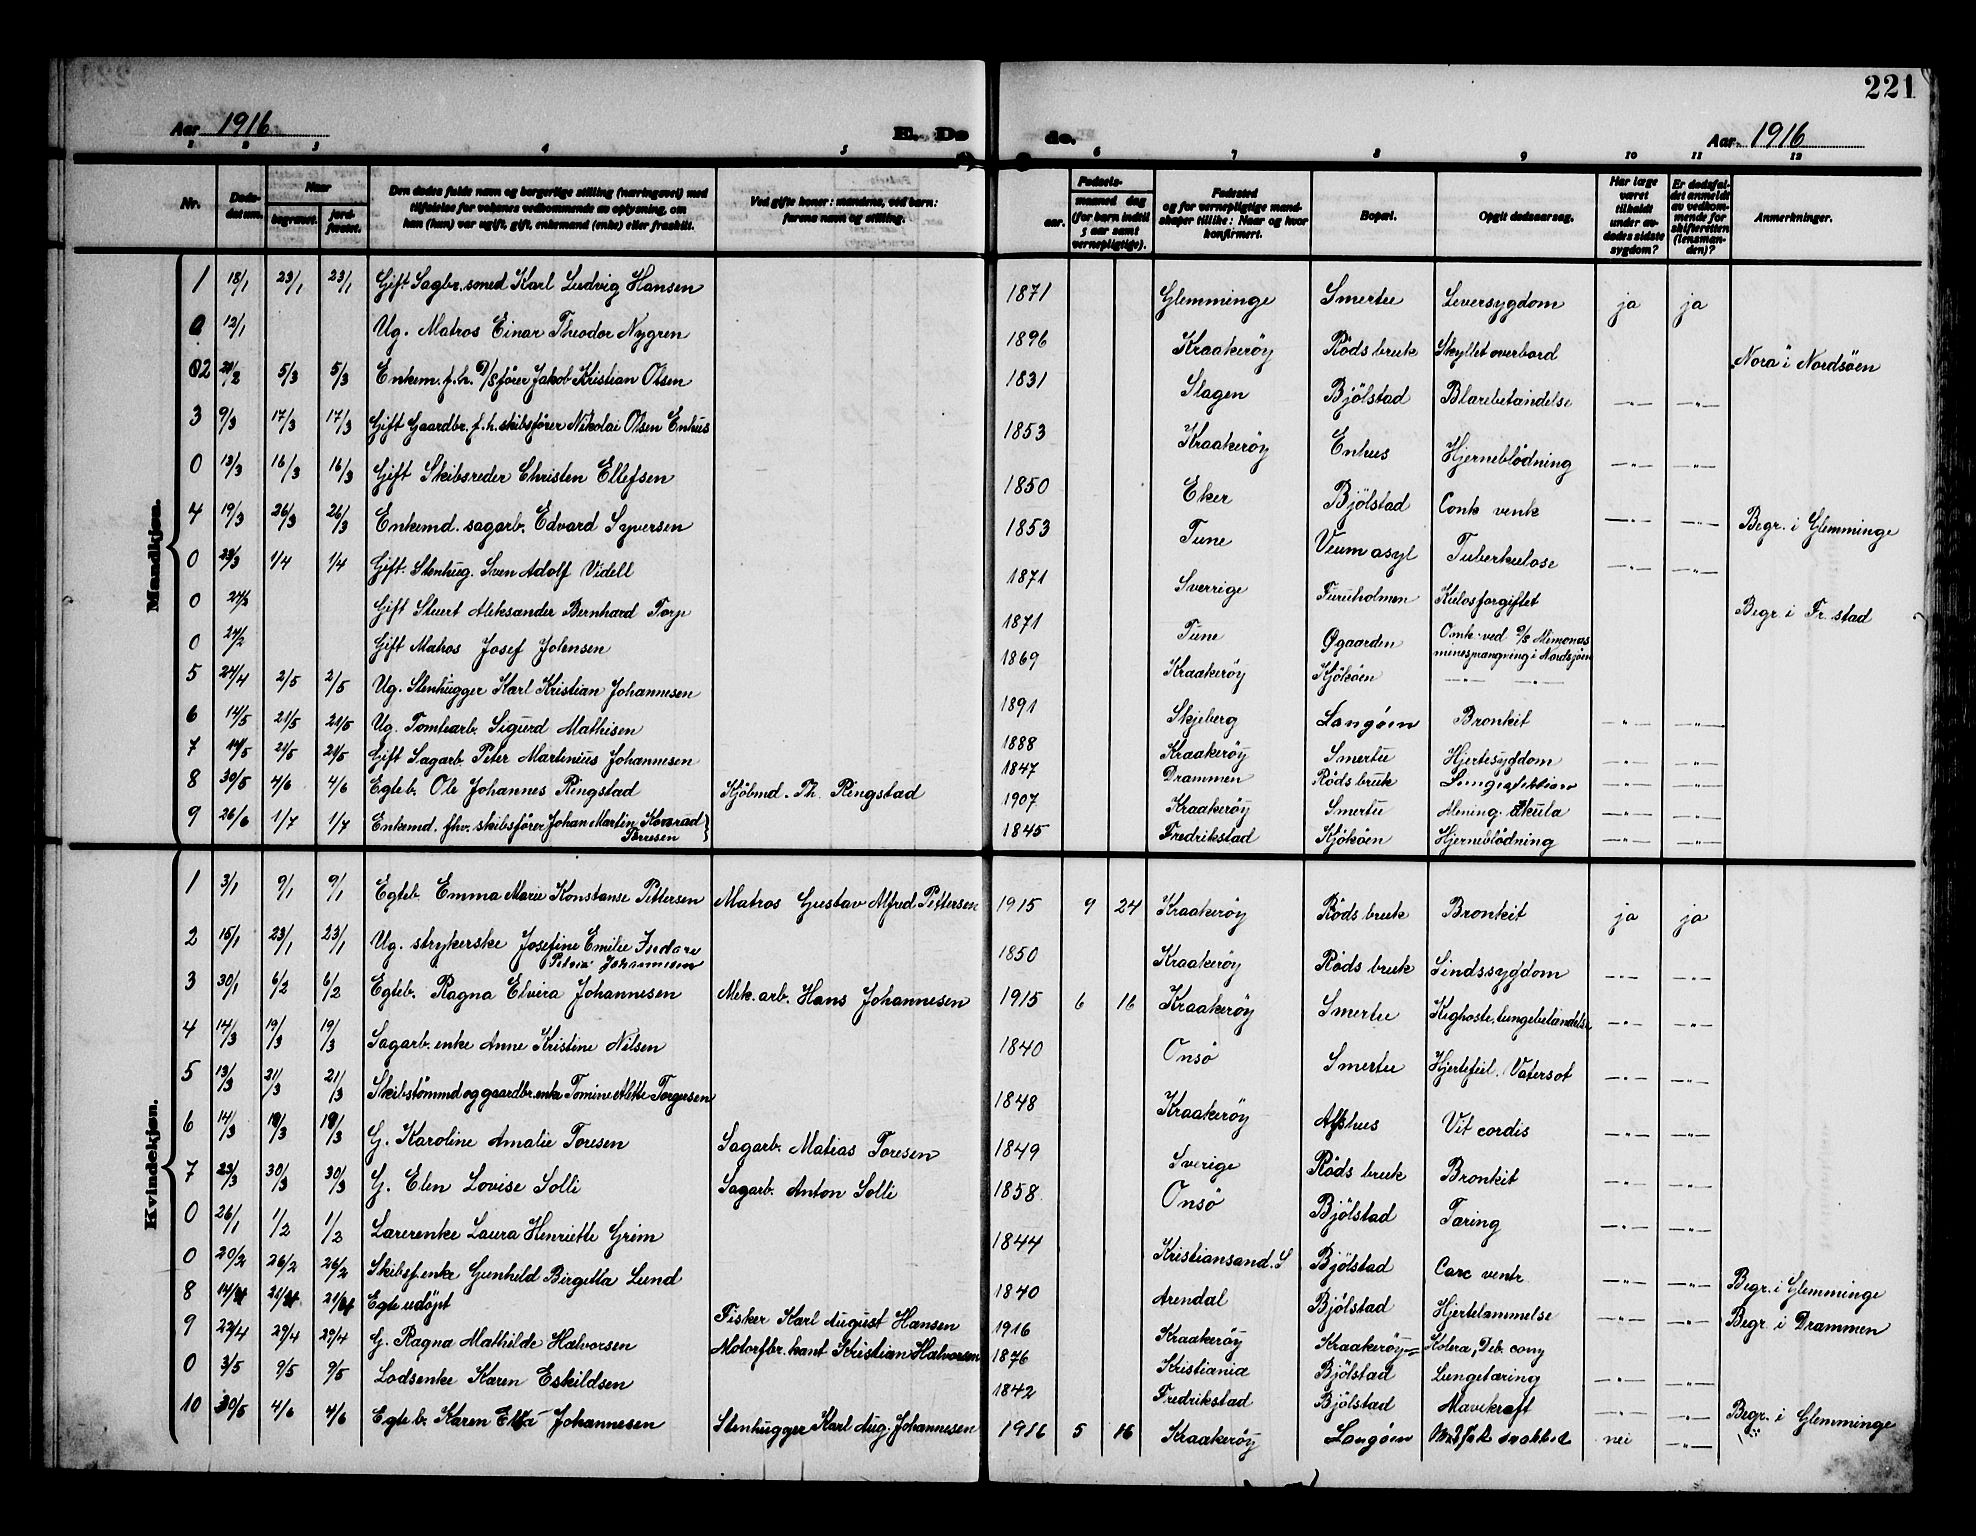 221
Aar 1916
E. Dø
de.
Aar 1916
1 2 3 4 5 6 7 8 9 10 11 12
Nr. | Døds-datum. | Naar begravet. | jord-fæstet. | Den dødes fulde navn og borgerlige stilling (næringsvei) med tilføielse for voksnes vedkommende av oplysning, om han (hun) var ugift, gift, enkemand (enke) eller fraskilt. | Ved gifte koner: mandens, ved barn: farens navn og stilling. | Fødsels- aar. | maaned dag (for barn indtil 5 aar samt vernepligtige). | Fødested og for vernepligtige mandskaper tillike: Naar og hvor konfirmert. | Bopæl. | Opgit dødsaarsag. | Har læge været tilkaldt under avdødes sidste sygdom? | Er dødsfaldet anmeldt av vedkommende for skifteretten (lensmanden)? | Anmerkninger.
Mandkjøn.
1 18/1 23/1 23/1 Gift Sagbr.smed Karl Ludvig Hansen 1871 Glemminge Smertu Leversygdom ja ja
0 12/1 Ug. Matros Einar Theodor Nygren 1896 Kraakerøy Røds bruk Skyllet overbord Nora i Nordsøen
2 5/3 5/3 Enkem. f.h. fører Jakob Kristian Olsen 1831 Slagen Bjölstad Blærebetændelse -"- -"-
3 9/3 17/3 17/3 Gift Gaardbr. f.h. skibsfører Nikolai Olsen Enhus 1853 Kraakerøy Enhus Hjerneblödning -"- -"-
0 13/3 16/3 16/3 Gift Skibsreder Christen Ellefsen 1850 Eker Bjölstad -"- -"- Begr. i Glemminge
4 19/3 26/3 26/3 Enkemd. sagarb. Edvard Syversen 1853 Tune Veum asyl Tuberkulose -"- -"-
0 23/3 1/4 1/4 Gift. Stenhug. Sven Adolf Videll 1871 Sverrige Furuholmen Kulosforgiftet Begr. i Fr.stad
0 Gift Stuert Aleksander Bernhard Torp 1871 Tune Øgaarden Omk. ved minesprængning i Nordsjøen
0 24/2 Gift Matros Josef Johnsen 1869 Kraakerøy Kjököen -"- -"-
5 24/4 2/5 2/5 Ug. Stenhugger Karl Kristian Johannesen 1891 Skjeberg Langøen Bronkit -"- -"-
6 14/5 21/5 21/5 Ug. Tomtearb. Sigurd Mathisen 1888 Kraakerøy Smertu Hjertesygdom -"- -"-
7 14/5 21/5 21/5 Gift Sagarb. Peter Martinius Johannesen 1847 Drammen Røds bruk -"- -"-
8 30/5 4/6 4/6 Egteb. Ole Johannes Ringstad Kjöbmd. Th. Ringstad 1907 Kraakerøy Smertu Mening. akula -"- -"-
9 26/6 1/7 1/7 Enkemd. fhv. skibsfører Johan Martin Konrad Torresen 1845 Fredrikstad Kjököen Hjerneblödning -"- -"-
Kvindekjøn.
1 3/1 9/1 9/1 Egteb. Emma Marie Konstanse Pettersen Matros Gustav Alfred Pettersen 1915 9 24 Kraakerøy Røds bruk Bronkit ja ja
2 15/1 23/1 23/1 Ug. strykerske Josefine Emilie Johannesen 1850 Kraakerøy Røds bruk Sindssygdom -"- -"-
3 30/1 6/2 6/2 Egteb. Ragna Elvira Johannesen Mek.arb. Hans Johannesen 1915 6 16 Kraakerøy Smertu Kighoste, lungebetændelse -"- -"-
4 14/3 19/3 19/3 Sagarb.enke Anne Kristine Nilsen 1840 Onsö Smertu Hjertefeil. Vatersot -"- -"-
5 13/3 21/3 21/3 Skibstömmd og gaardbr.enke Tomine Alette Torgersen 1848 Kraakerøy Afshus Vit cordis -"- -"-
6 14/3 19/3 19/3 G. Karoline Amalie Toresen Sagarb. Matias Toresen 1849 Sverige Røds bruk Bronkit -"- -"-
7 23/3 30/3 30/3 G. Elen Lovise Solli Sagarb. Anton Solli 1858 Onsö Bjölstad Tæring -"- -"-
0 26/1 1/2 1/2 Lærerenke Laura Henriette Grim 1844 Kristiansand.S Bjölstad Carc ventr -"- -"- Begr. i Glemminge
0 20/2 26/2 26/2 Skibsf.enke Gunhild Birgetta Lund 1840 Arendal Bjölstad Hjertelammelse -"- -"- Begr. i Drammen
8 14/4 21/4 21/4 Egte udöpt Fisker Karl August Hansen 1916 Kraakerøy Kraakerøy
9 22/4 29/4 29/4 G. Ragna Mathilde Halvorsen Motorfbr.kant Kristian Halvorsen 1876 Kristiania Bjölstad Lungetæring -"- -"-
0 3/5 9/5 9/5 Lodsenke Karen Eskildsen 1842 Fredrikstad Bjölstad Mavekræft -"- -"- Begr. i Glemminge
10 30/5 4/6 4/6 Egteb. Karen Elsa Johannesen Stenhugger Karl Aug. Johannesen 1916 5 16 Kraakerøy Langøen nei -"-